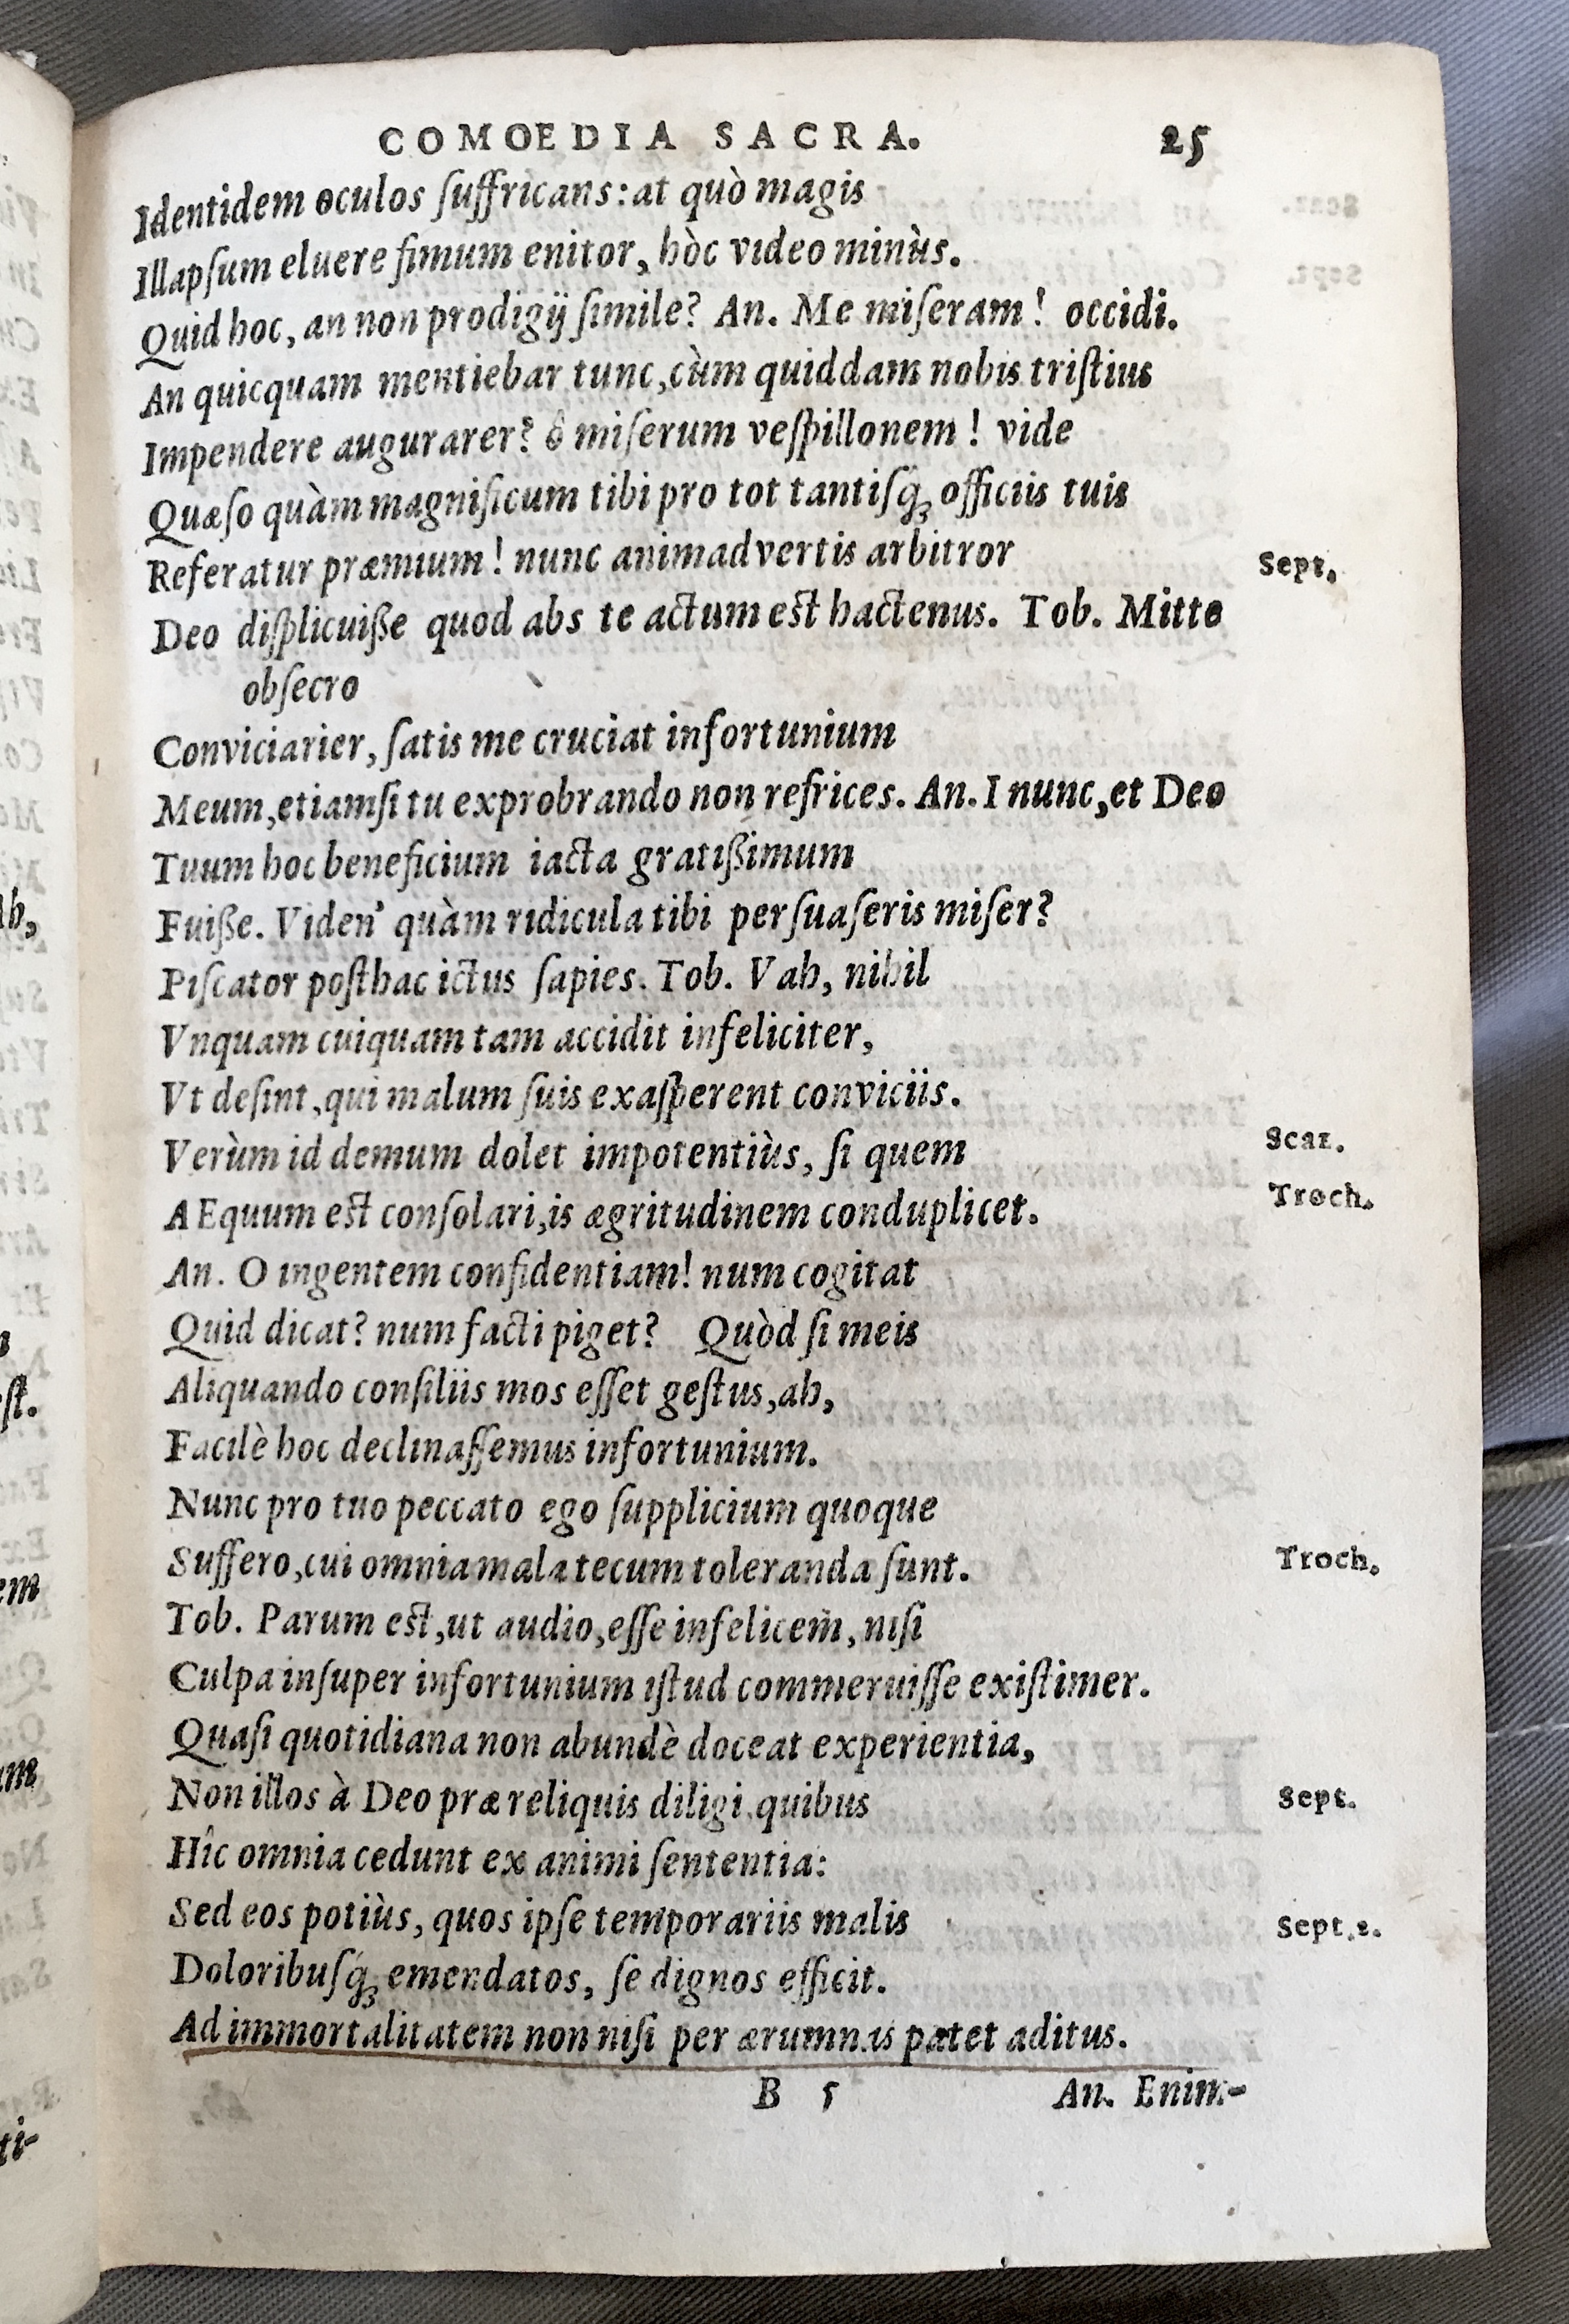 COMOEDIA SACRA. 25
Identidem oculos ſuffricans: at quò magis
Illapſum eluere fimum enitor, hòc video minùs.
Quid hoc, an non prodigij ſimile? An. Me miſeram! occidi.
An quicquam mentiebar tunc, cùm quiddam nobis triſtius
Impendere augurarer? ô miſerum veſpillonem! vide
Quæſo quàm magnificum tibi pro tot tantiſq́ꝫ officiis tuis
Referatur præmium! nunc animadvertis arbitror Sept.
Deo diſplicuiße quod abs te actum est hactenus. Tob. Mitte
obſecro
Conviciarier, ſatis me cruciat infortunium
Meum, etiamſi tu exprobrando non refrices. An. I nunc, et Deo
Tuum hoc beneficium iacta gratißimum
Fuiße. Viden' quàm ridicula tibi perſuaſeris miſer?
Piſcator poſthac ictus ſapies. Tob. Vah, nihil
Vnquam cuiquam tam accidit infeliciter,
Vt deſint, qui malum ſuis exaſperent conviciis.
Verùm id demum dolet impotentiùs, ſi quem Scaz.
AEquum est conſolari, is ægritudinem conduplicet. Troch.
An. O ingentem confidentiam! num cogitat
Quid dicat? num facti piget? Quòd ſi meis
Aliquando conſiliis mos eſſet geſtus, ah,
Facilè hoc declinaſſemus infortunium.
Nunc pro tuo peccato ego ſupplicium quoque
Suffero, cui omnia mala tecum toleranda ſunt. Troch.
Tob. Parum est, ut audio, eſſe infelicem, niſi
Culpa inſuper infortunium iſtud commeruiſſe exiſtimer.
Quaſi quotidiana non abundè doceat experientia,
Non illos à Deo præ reliquis diligi quibus Sept.
Hîc omnia cedunt ex animi ſententia:
Sed eos potiùs, quos ipſe temporariis malis Sept. 2.
Doloribuſq́ꝫ emendatos, ſe dignos efficit.
Ad immortalitatem non niſi per ærumnas patet aditus.
B 5 An. Enim-